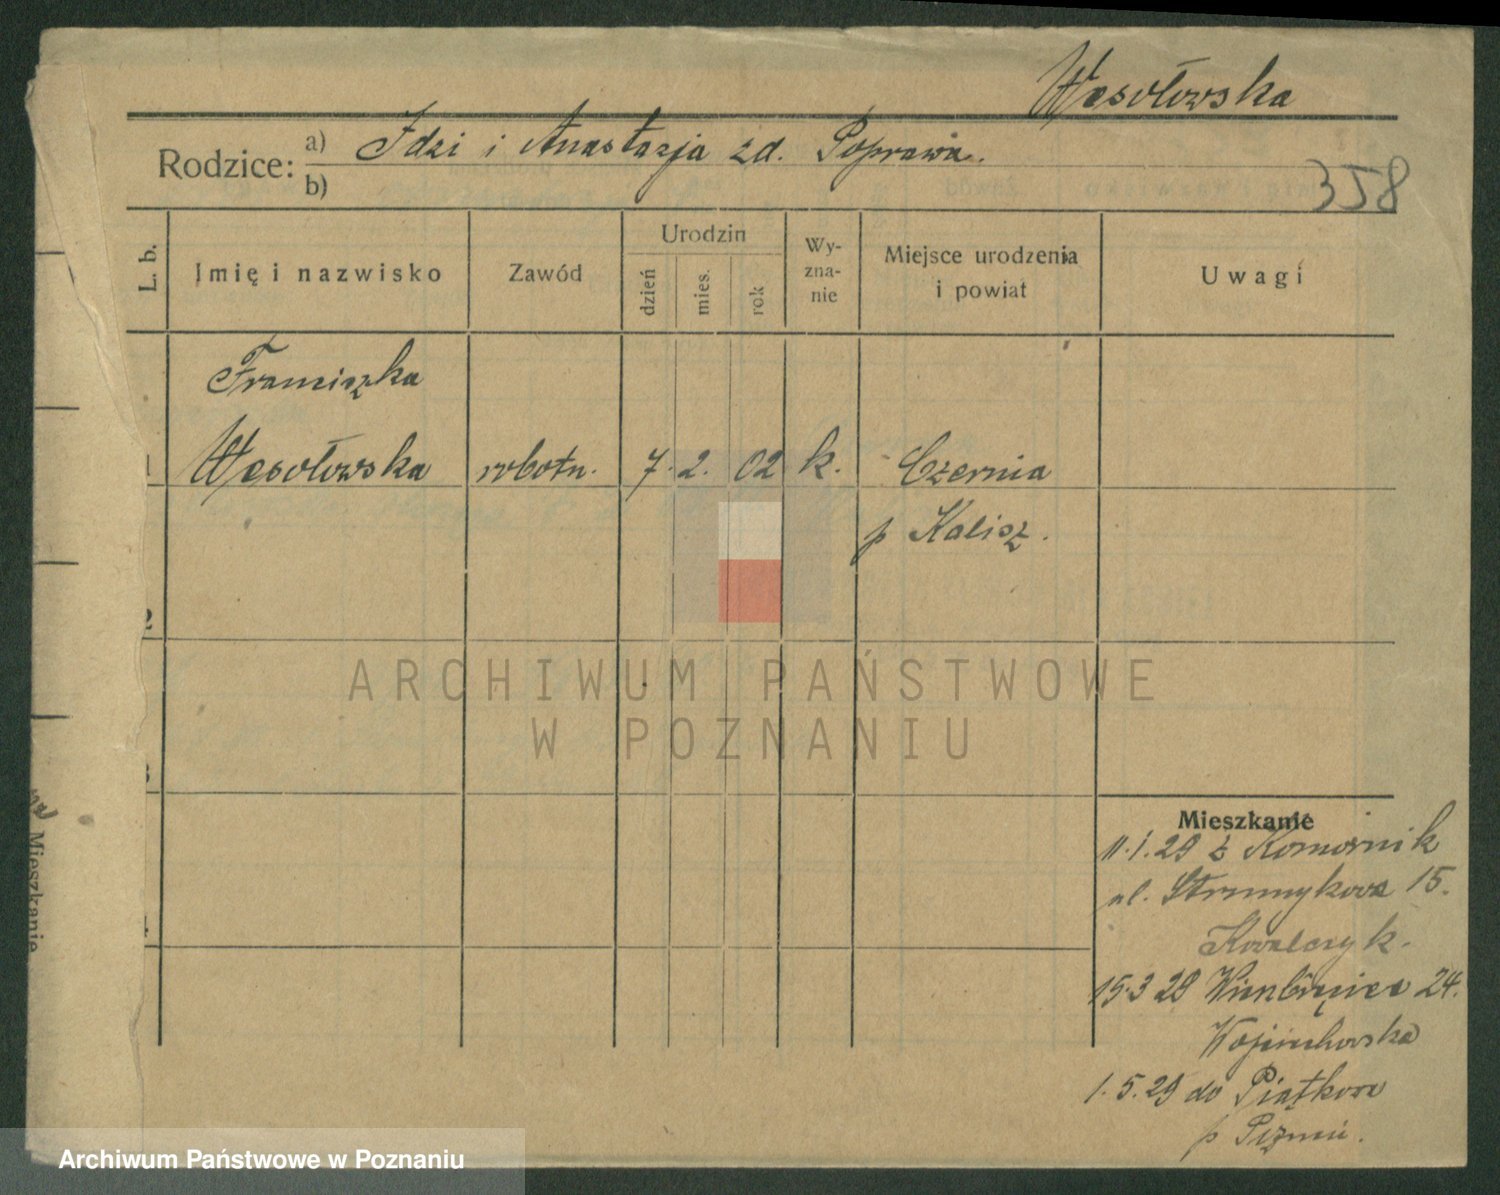 Wesołowska
Rodzice: a) Idzi i Anastazja zd. Poprawa.
b)
358
L. b.
Imię i nazwisko
Zawód
Urodzin
dzień
mies.
rok
Wy-
zna-
nie
Miejsce urodzenia
i powiat
Uwagi
Franciszka
1 Wesołowska robotn. 7. 2. 02 k. Czernia
p Kalisz.
2
3
4
ARCHIWUM PAŃSTWOWE
W POZNANIU
Mieszkanie
11.1.29 z Komornik
ul. Strumykowa 15.
Kowalczyk.
15.3 29 Wierzbięcice 24.
Wojciechowska
1.5.29 do Piątkowa
p
Mieszkanie
Archiwum Państwowe w Poznaniu